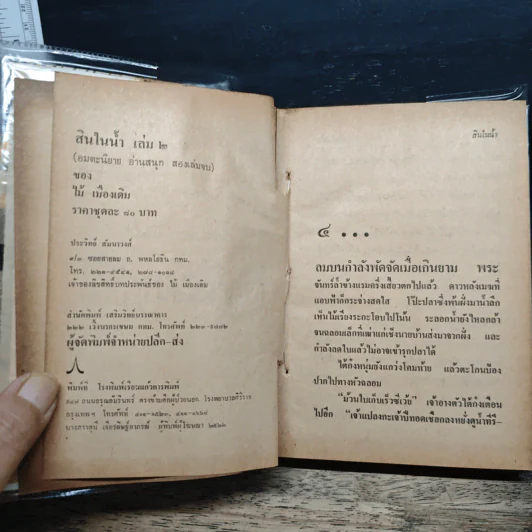 สินในน้ำ เล่ม ๒
(อมตะนิยาย อ่านสนุก สองเล่มจบ)
ของ
ไม้ เมืองเดิม
ราคาชุดละ ๘๐ บาท
ประวิทย์ สัมมาวงศ์
๙/๓ ซอยสายลม ถ. พหลโยธิน กทม.
เจ้าของลิขสิทธิ์บทประพันธ์ของ ไม้ เมืองเดิม
สำนักพิมพ์ เสริมวิทย์บรรณาคาร
๒๒๒ เวิ้งนครเขษม กทม. โทรศัพท์
ผู้จัดพิมพ์จำหน่ายปลีก-ส่ง
พิมพ์ที่ โรงพิมพ์เรือนแก้วการพิมพ์
ถนนอรุณอมรินทร์ ตรงข้ามตึกผู้ป่วยนอก โรงพยาบาลศิริราช
กรุงเทพฯ โทรศัพท์
ผู้พิมพ์ผู้โฆษณา
สินในน้ำ
๔ ...
ลมบนกำลังพัดจัดเมื่อเกินยาม พระ
จันทร์ล้ำข้างแรมครึ่งเสี้ยวตกไปแล้ว ดาวหลังเมฆที่
แอบฟ้าก็กระจ่างสดใส โป๊ะปลาซึ่งพ้นฝั่งมาน้ำลึก
เห็นไม้เรียงระกะโอบไปในน้ำ ระลอกน้ำยังไหลกล้า
จนฉลอมเล็กที่เผ่าแก่เซ็งนายบ้านส่งมาจากฝั่ง และ
กำลังกดใบแล้วไม่อาจเข้ารุกปลาได้
ไต้ก๋งหนุ่มยังแกร่งโคมท้าย แล้วตะโกนป้อง
ปากไปทางหัวฉลอม
"ม้วนใบเก็บเร็วซีเว้ย" เจ้าอางตัวไต้ก๋งเตือน
ไปอีก "เจ้าแปลงกะเจ้าปีทอดเชือกลงหยั่งดูน้ำที่รึ-